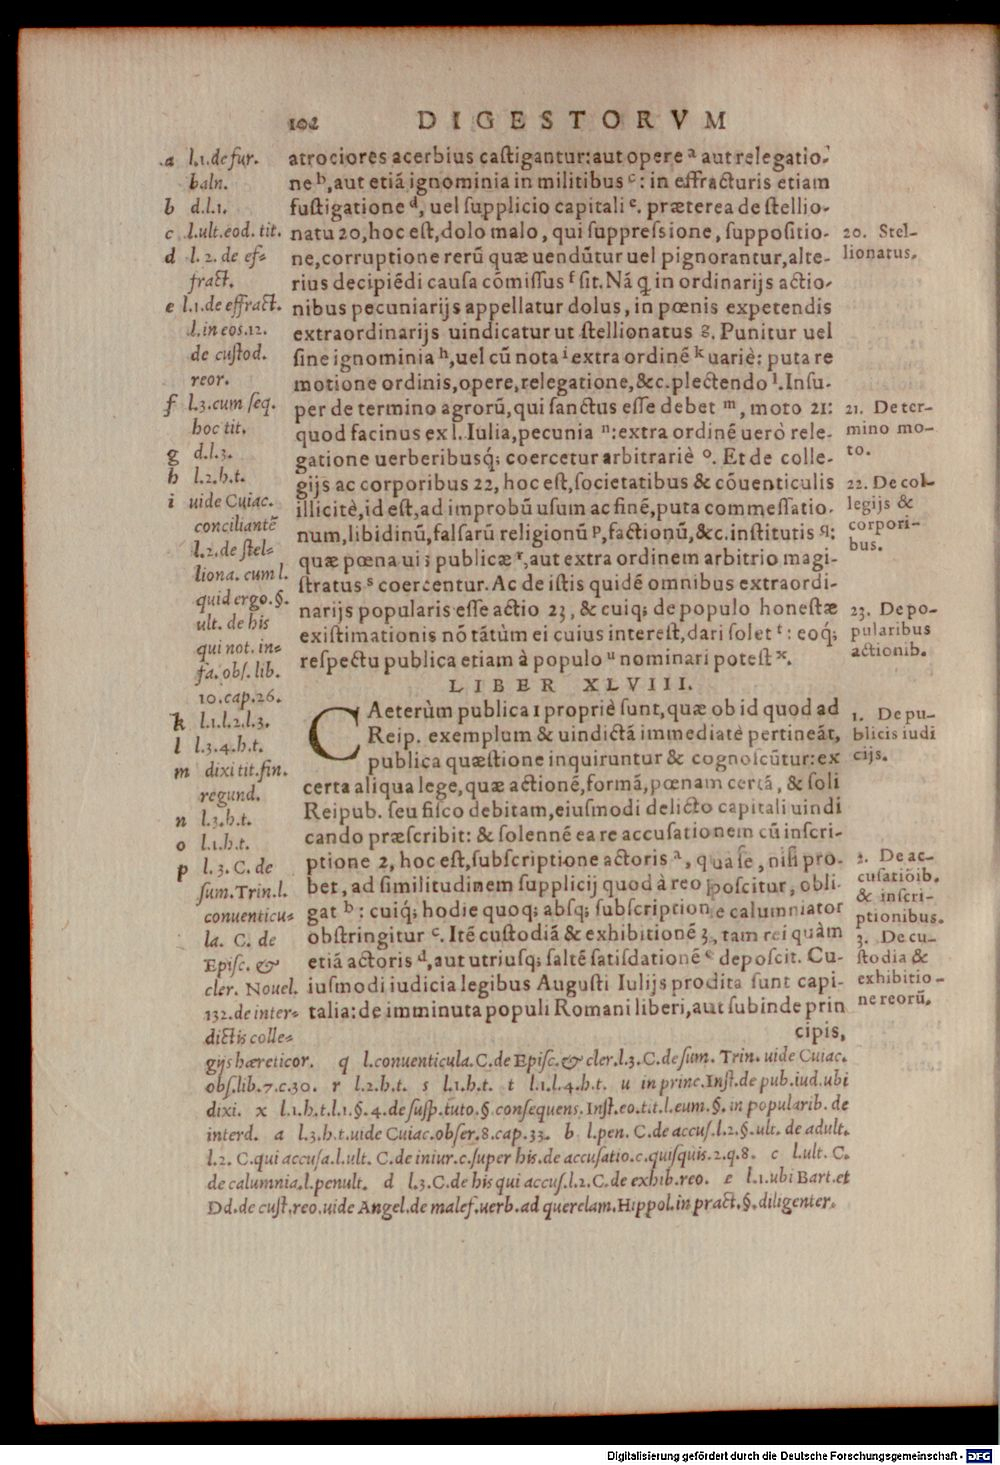 102 DIGESTORVM
atrociores acerbius castigantur: aut opere a aut relegatio-
ne b, aut etiā ignominia in militibus c: in effracturis etiam
fustigatione d, uel supplicio capitali e. præterea de stellio-
natu 20, hoc est, dolo malo, qui suppressione, suppositio-
ne, corruptione rerū quæ uendūtur uel pignorantur, alte-
rius decipiēdi causa cōmissus f sit. Nā q in ordinarijs actio-
nibus pecuniarijs appellatur dolus, in pœnis expetendis
extraordinarijs uindicatur ut stellionatus g. Punitur uel
sine ignominia h, uel cū nota i extra ordinē k uariè: puta re
motione ordinis, opere, relegatione, &c. plectendo l. Insu-
per de termino agrorū, qui sanctus esse debet m, moto 21:
quod facinus ex l. Iulia, pecunia n: extra ordinē uerò rele-
gatione uerberibusq́; coercetur arbitrariè o. Et de colle-
gijs ac corporibus 22, hoc est, societatibus & cōuenticulis
illicitè, id est, ad improbū usum ac finē, puta commessatio-
num, libidinū, falsarū religionū p, factionū, &c. institutis q:
quæ pœna ui; publicæ r, aut extra ordinem arbitrio magi-
stratus s coercentur. Ac de istis quidē omnibus extraordi-
narijs popularis esse actio 23, & cuiq; de populo honestæ
existimationis nō tātùm ei cuius interest, dari solet t: eoq́;
respectu publica etiam à populo u nominari potest x.
LIBER XLVIII.
CAeterùm publica 1 propriè sunt, quæ ob id quod ad
Reip. exemplum & uindictā immediatè pertineāt,
publica quæstione inquiruntur & cognoscūtur: ex
certa aliqua lege, quæ actionē, formā, pœnam certā, & soli
Reipub. seu fisco debitam, eiusmodi delicto capitali uindi
cando præscribit: & solennē ea re accusationem cū inscri-
ptione 2, hoc est, subscriptione actoris a, qua se, nisi pro-
bet, ad similitudinem supplicij quod à reo poscitur, obli-
gat b: cuiq́; hodie quoq; absq; subscriptione calumniator
obstringitur c. Itē custodiā & exhibitionē 3, tam rei quàm
etiā actoris d, aut utriusq; saltē satisdationē e deposcit. Cu-
iusmodi iudicia legibus Augusti Iulijs prodita sunt capi-
talia: de imminuta populi Romani liberi, aut subinde prin
cipis,
a l.1. de fur.
baln.
b d.l.1.
c l.ult. eod. tit.
d l.2. de ef-
fract.
e l.1. de effract.
l. in eos. 12.
de custod.
reor.
f l.3. cum seq.
hoc tit.
g d.l.3.
h l.2.h.t.
i uide Cuiac.
conciliantē
l.2. de stel-
liona. cum l.
quid ergo. §.
ult. de his
qui not. in-
fa. obs. lib.
10. cap. 26.
k l.1.l.2.l.3.
l l.3.4.h.t.
m dixi tit. fin.
regund.
n l.3.h.t.
o l.1.h.t.
p l.3. C. de
sum. Trin. l.
conuenticu-
la. C. de
Episc. &
cler. Nouel.
132. de inter-
dictis colle-
gijs hæreticor. q l. conuenticula. C. de Episc. & cler. l.3. C. de sum. Trin. uide Cuiac.
obs. lib. 7. c. 30. r l.2.h.t. s l.1.h.t. t l.1.l.4.h.t. u in princ. Inst. de pub. iud. ubi
dixi. x l.1.h.t.l.1.§.4. de susp. tuto. § consequens. Inst. eo. t.it. l. eum. §. in popularib. de
interd. a l.3.h.t. uide Cuiac. obser. 8. cap. 33. b l. pen. C. de accus. l.2.§. ult. de adult.
l.2. C. qui accusa. l. ult. C. de iniur. c. super his. de accusatio. c. quisquis. 2. q. 8. c l. ult. C.
de calumnia. l. penult. d l.3. C. de his qui accus. l.2. C. de exhib. reo. e l.1. ubi Bart. et
Dd. de cust. reo. uide Angel. de malef. uerb. ad querelam. Hippol. in pract. §. diligenter.
20. Stel-
lionatus.
21. De ter-
mino mo-
to.
22. De col-
legijs &
corpori-
bus.
23. De po-
pularibus
actionib.
1. De pu-
blicis iudi
cijs.
2. De ac-
cusatiōib.
& inscri-
ptionibus.
3. De cu-
stodia &
exhibitio-
ne reorū.
Digitalisierung gefördert durch die Deutsche Forschungsgemeinschaft - DFG